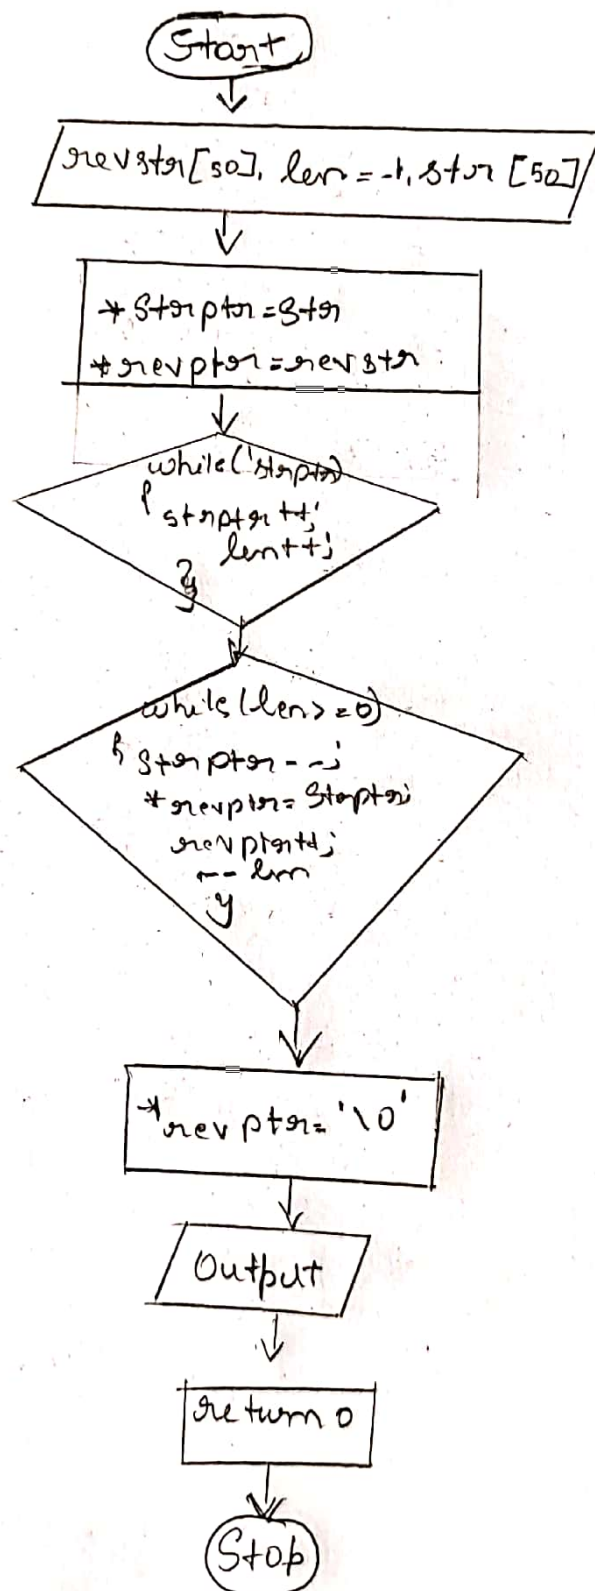 Start
revstr[50], len=-1, str [50]
*Strptr=Str
*revptr=revstr
while(*strptr)
{
strptr++;
len++;
}
while(len>=0)
{ Strptr--;
*revptr= Strptr;
revptr++;
--len
}
*revptr= '\0'
Output
return 0
Stop